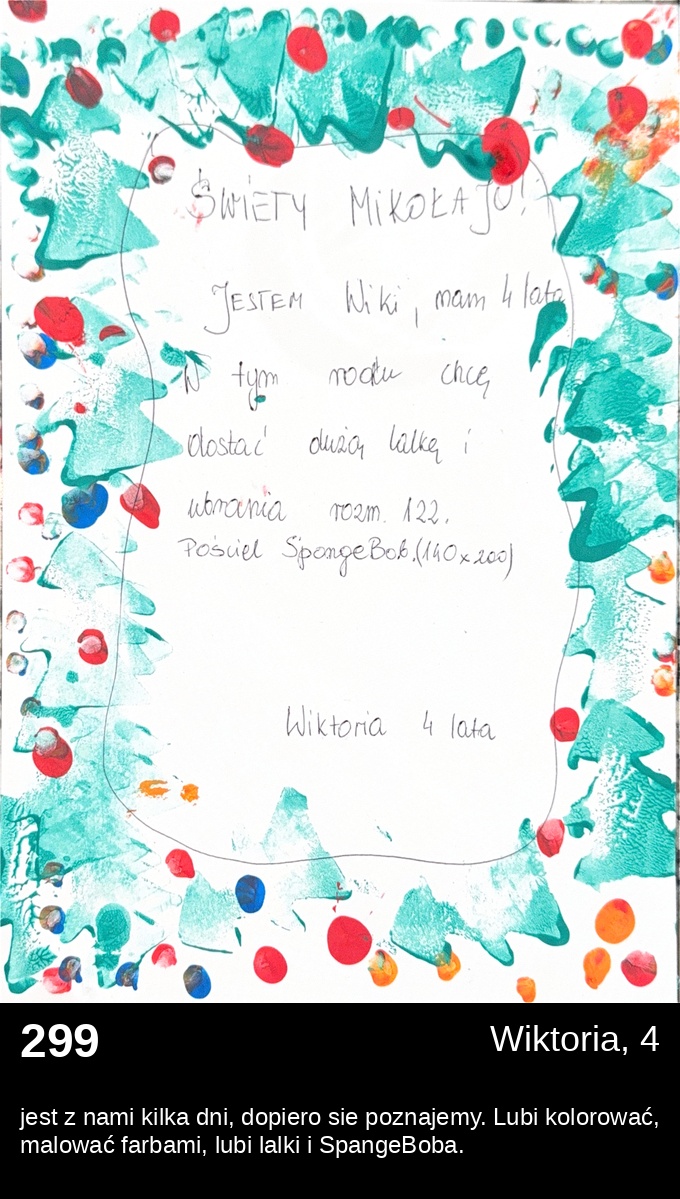 ŚWIĘTY MIKOŁAJU!
JESTEM Wiki, mam 4 lata
W tym roku chcę
dostać dużą lalkę i
ubrania rozm. 122.
Pościel SpongeBob.(140x200)
Wiktoria 4 lata
299
Wiktoria, 4
jest z nami kilka dni, dopiero sie poznajemy. Lubi kolorować,
malować farbami, lubi lalki i SpangeBoba.